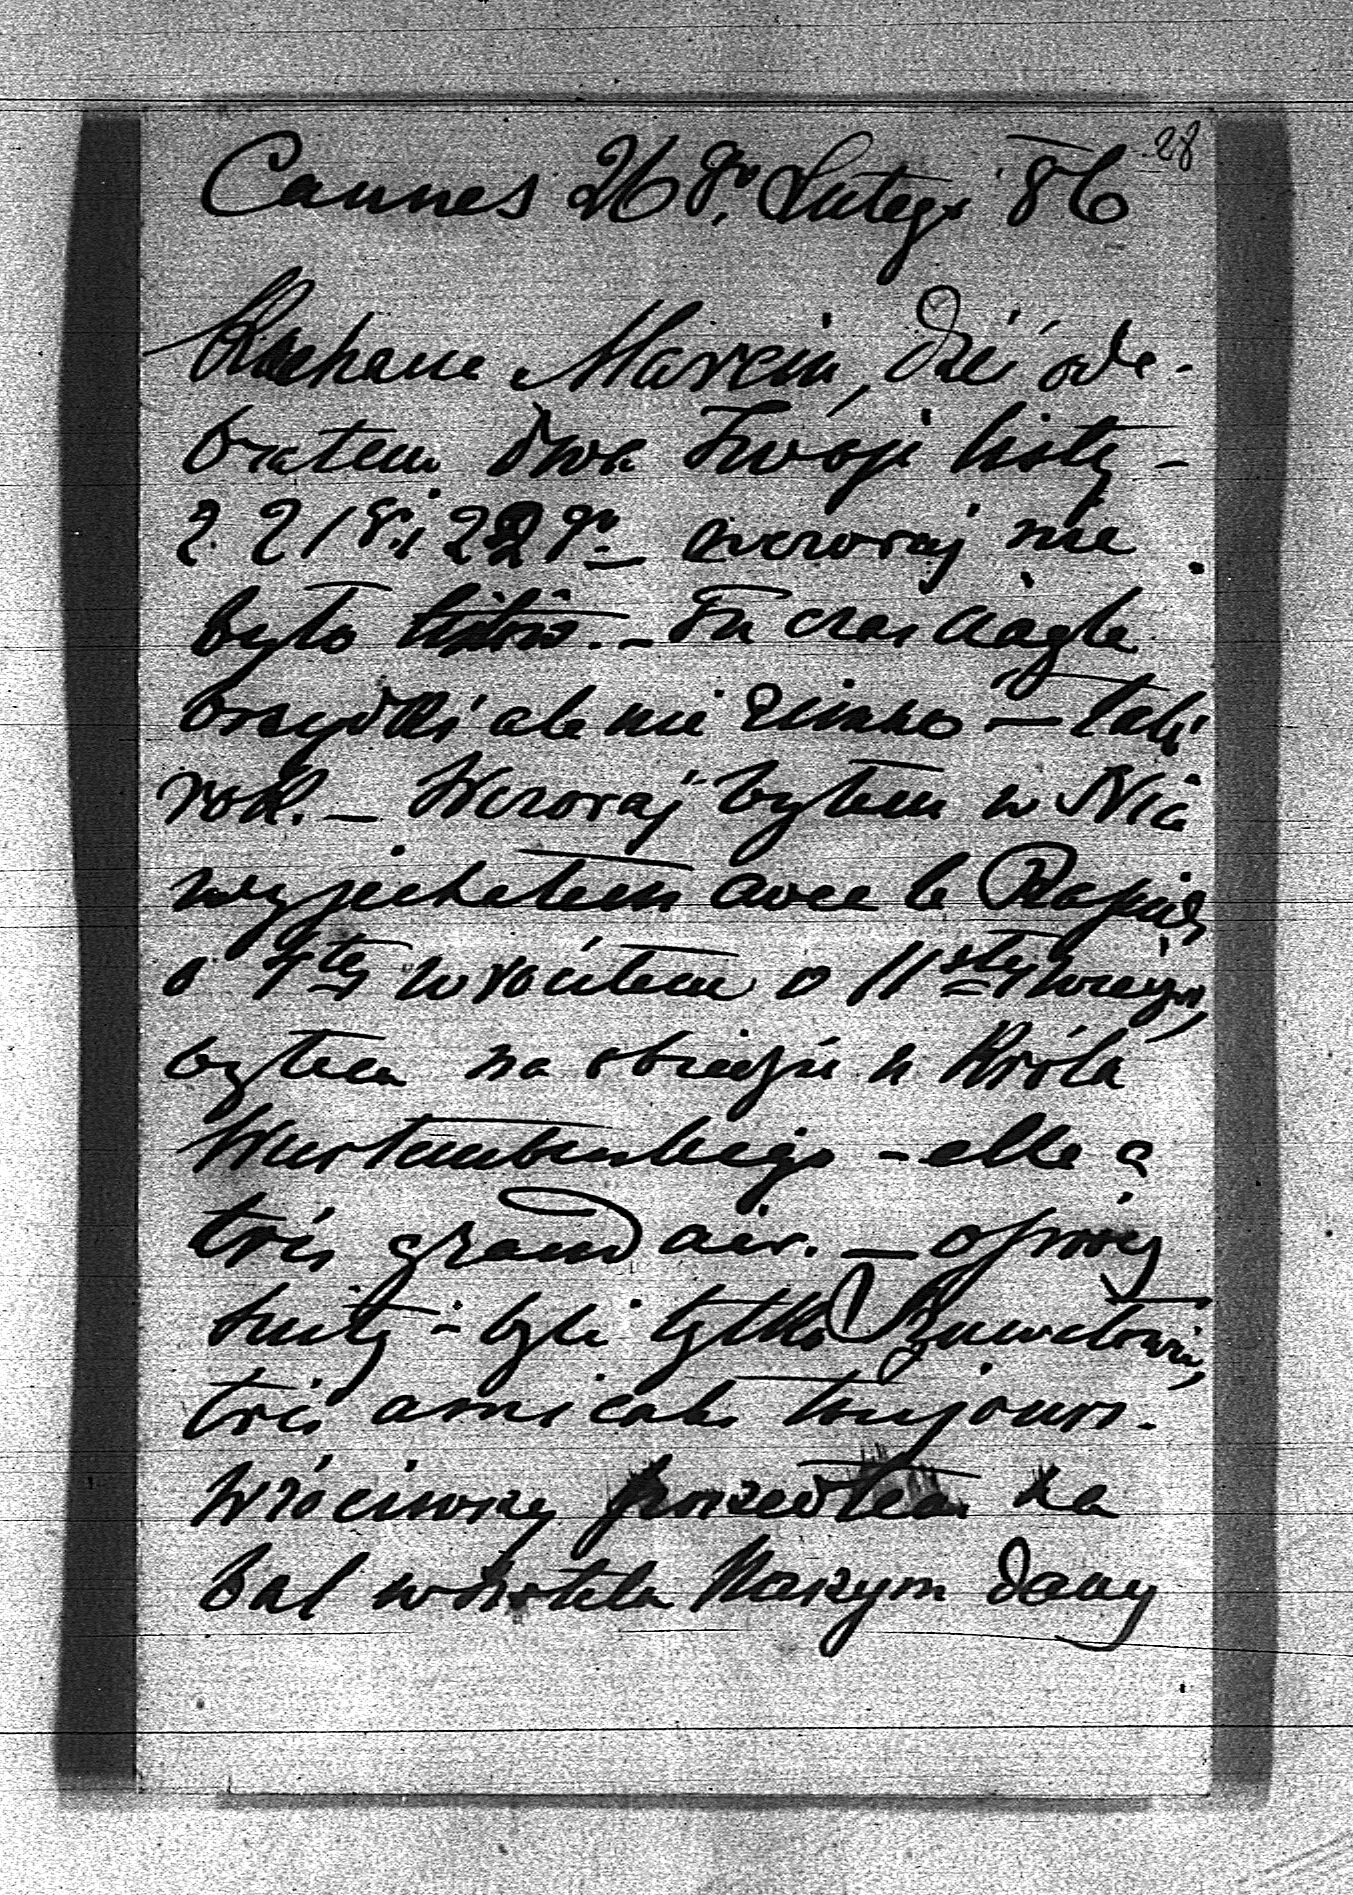 28
Cannes 26 go Lutego 86
Kochana Marciu, Dziś ode-
brałem dwa Twoje listy –
z 21 g. i 22 go – a wczoraj nie
było listów. – Tu czas ciągle
brzydki ale nie zimno – taki
rok. – Wczoraj byłem w Nic
wyjechałem avec le Rapide
o wróciłem o 11stej
byłem na obiedzie u Króla
Wurtemberskiego – elle a
très grand air. – oprócz
świty – byli tylko
très amicale toujours.
Wróciwszy poszedłem na
bal w hotelu dany